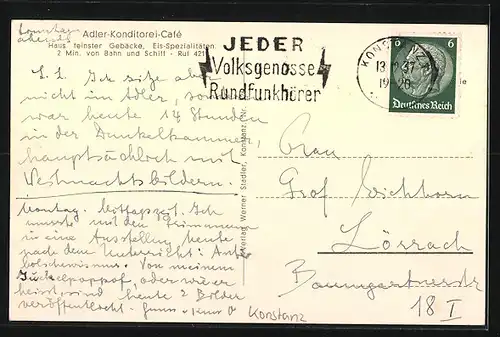 Sonntag
abends
Adler-Konditorei-Café
Haus feinster Gebäcke, Eis-Spezialitäten
2 Min. von Bahn und Schiff - Ruf 421
JEDER
Volksgenosse
Rundfunkhörer
KONSTANZ
13 37
19
6 6
Deutsches Reich
L. L. Ich sitze aber
nicht im Adler, sondern
war heute 14 Stunden
in der Dunkelkammer,
hauptsächlich mit
Weihnachtsbildern.
Montag. Mittagszeit. Ich
musste mit den
in eine Ausstellung heute
nach dem Unterricht: Anti-
bolschewismus. Von meinem
oder wie er
heisst, sind heute 2 Bilder
veröffentlicht.
Konstanz
Verlag Werner Stedler, Konstanz
Frau
Graf Eichhorn
Lörrach
Baumgartnerstr
18 I